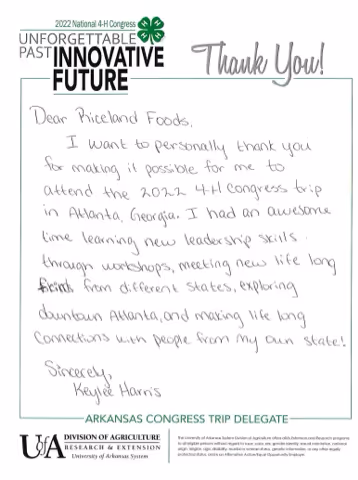 2022 National 4-H Congress
UNFORGETTABLE
PAST INNOVATIVE
FUTURE
Thank You!
Dear Riceland Foods,
I want to personally thank you
for making it possible for me to
attend the 2022 4-H Congress trip
in Atlanta, Georgia. I had an awesome
time learning new leadership skills
through workshops, meeting new life long
from different states, exploring
downtown Atlanta, and making life long
connections with people from my own state!
Sincerely,
Keylee Harris
ARKANSAS CONGRESS TRIP DELEGATE
UofA DIVISION OF AGRICULTURE
RESEARCH & EXTENSION
University of Arkansas System